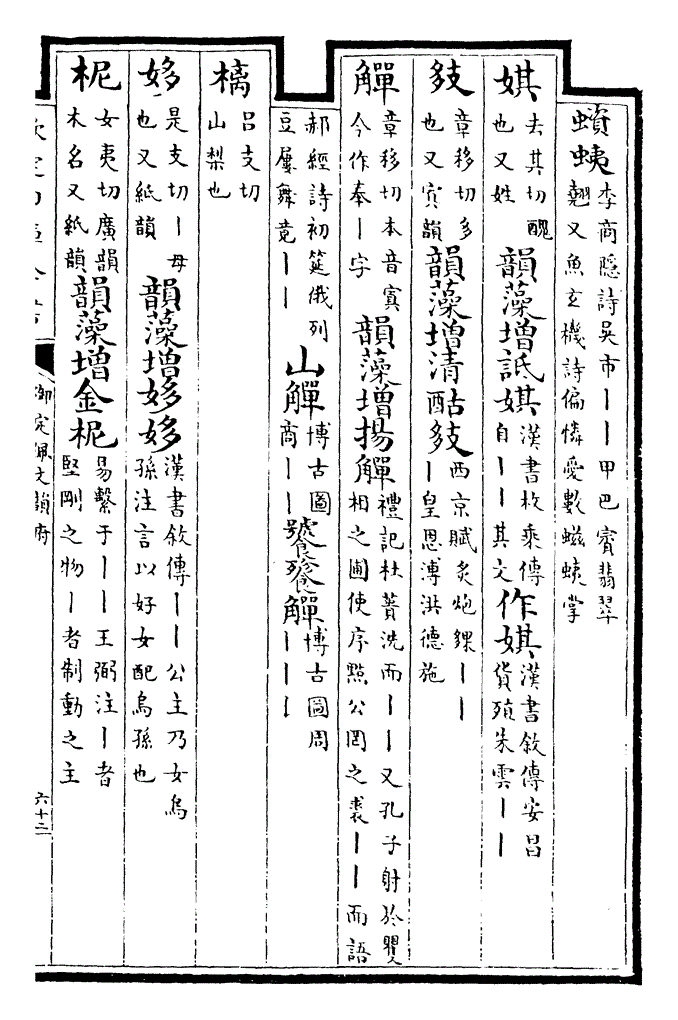 蠀蛦李商隱詩吳市丨丨甲巴賨翡翠翹又魚玄機詩偏憐愛數蠀蛦掌
娸去其切醜也又姓韻藻增詆娸漢書枚乘傳自丨丨其文作娸漢書敘傳安昌貨殖朱雲丨丨
㩼章移切多也又寘韻韻藻增清酤㩼西京賦炙炮錁丨丨丨皇恩溥洪德施
觶章移切本音寘今作奉丨字韻藻增揚觶禮記杜蕢洗而丨丨又孔子射於矍相之圃使序點公罔之裘丨丨而語
郝經詩初筵俄列豆屢舞竟丨丨山觶博古圖商丨丨饕餮觶博古圖周丨丨丨
樆呂支切山梨也
姼是支切丨母也又紙韻韻藻增姼姼漢書敘傳丨丨公主乃女烏孫注言以好女配烏孫也
柅女夷切廣韻木名又紙韻韻藻增金柅易繫于丨丨王弼注丨者堅剛之物丨者制動之主
欽定四庫全書
御定佩文韻府
六十二